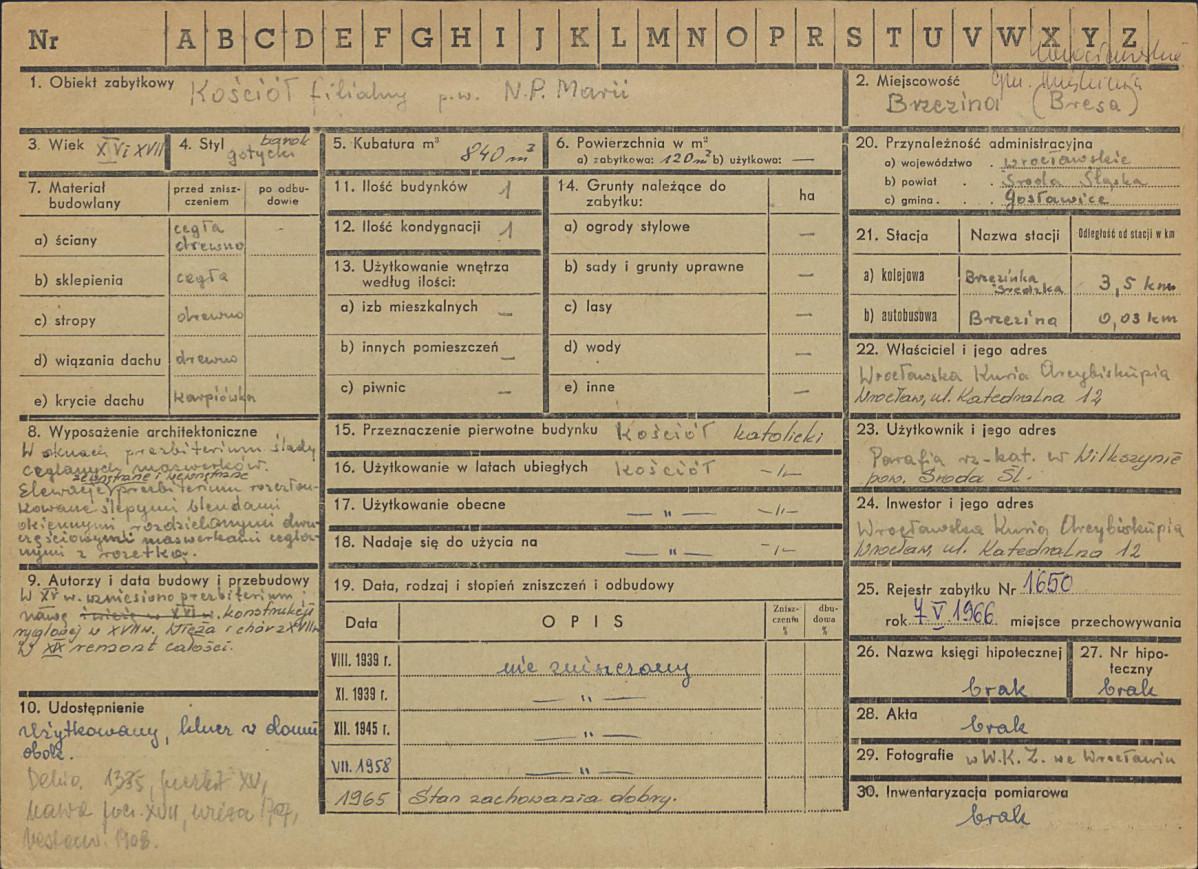 Nr A B C D E F G H I J K L M N O P R S T U V W X Y Z
1. Obiekt zabytkowy Kościół filialny p.w. N.P. Marii
2. Miejscowość gm.
Brzezina (Bresa)
3. Wiek XV i XVII
4. Styl barok
gotycki
5. Kubatura m³ 840 m³
6. Powierzchnia w m²
a) zabytkowa: 120 m² b) użytkowa: —
7. Materiał budowlany
przed zniszczeniem
po odbudowie
a) ściany cegła drewno -
b) sklepienia cegła
c) stropy drewno
d) wiązania dachu drewno
e) krycie dachu karpiówka
8. Wyposażenie architektoniczne
W oknach prezbiterium ślady
ceglanych maswerków.
zewnętrzne i wewnętrzne
Elewacje prezbiterium rozczłon-
kowane ślepymi blendami
okiennymi, rozdzielanymi dwu-
częściowymi maswerkami cegla-
nymi z rozetką.
9. Autorzy i data budowy i przebudowy
W XV w. wzniesiono prezbiterium i
nawę konstrukcji
ryglowej w XVII w. Wieża i chór z XVIII w.
W XIX remont całości.
10. Udostępnienie
Użytkowany, klucz w domu
obok.
Dehio. 1335, XV,
nawa pocz. XVII, wieża 1797,
restaur. 1908.
11. Ilość budynków 1
12. Ilość kondygnacji 1
13. Użytkowanie wnętrza
według ilości:
a) izb mieszkalnych —
b) innych pomieszczeń —
c) piwnic —
14. Grunty należące do
zabytku:
ha
a) ogrody stylowe —
b) sady i grunty uprawne —
c) lasy —
d) wody —
e) inne —
15. Przeznaczenie pierwotne budynku Kościół katolicki
16. Użytkowanie w latach ubiegłych Kościół -"-
17. Użytkowanie obecne — " — -"-
18. Nadaje się do użycia na — " — -"-
19. Data, rodzaj i stopień zniszczeń i odbudowy
Data OPIS Zniszczenia % dbudowa %
VIII. 1939 r. nie zniszczony
XI. 1939 r. — " —
XII. 1945 r. — " —
VII. 1958 — " —
1965 Stan zachowania dobry.
20. Przynależność administracyjna
a) województwo . wrocławskie
b) powiat . . Środa Śląska
c) gmina . . Gosławice
21. Stacja Nazwa stacji Odległość od stacji w km
a) kolejowa Brzezinka Średzka 3,5 km
b) autobusowa Brzezina 0,03 km
22. Właściciel i jego adres
Wrocławska Kuria Arcybiskupia
Wrocław, ul. Katedralna 12
23. Użytkownik i jego adres
Parafia rz-kat. w Wilkszynie
pow. Środa Śl.
24. Inwestor i jego adres
Wrocławska Kuria Arcybiskupia
Wrocław, ul. Katedralna 12
25. Rejestr zabytku Nr 1650
rok 7 V. 1966 miejsce przechowywania
26. Nazwa księgi hipotecznej
brak
27. Nr hipoteczny
brak
28. Akta brak
29. Fotografie w W.K.Z. we Wrocławiu
30. Inwentaryzacja pomiarowa
brak